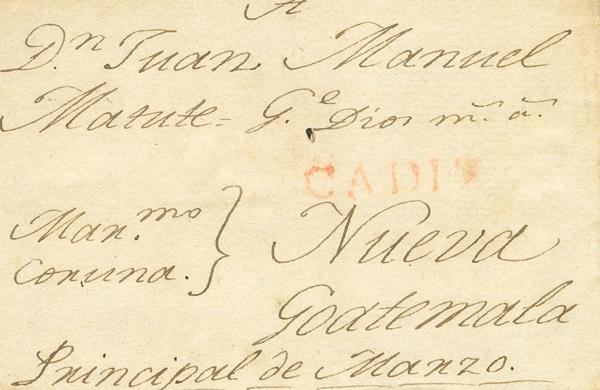 A
D.n Juan Manuel
Matute = G.e Dios m.s a.s
CADIZ
Mar.mo } Nueva
Coruna. } Goatemala
Principal de Marzo.